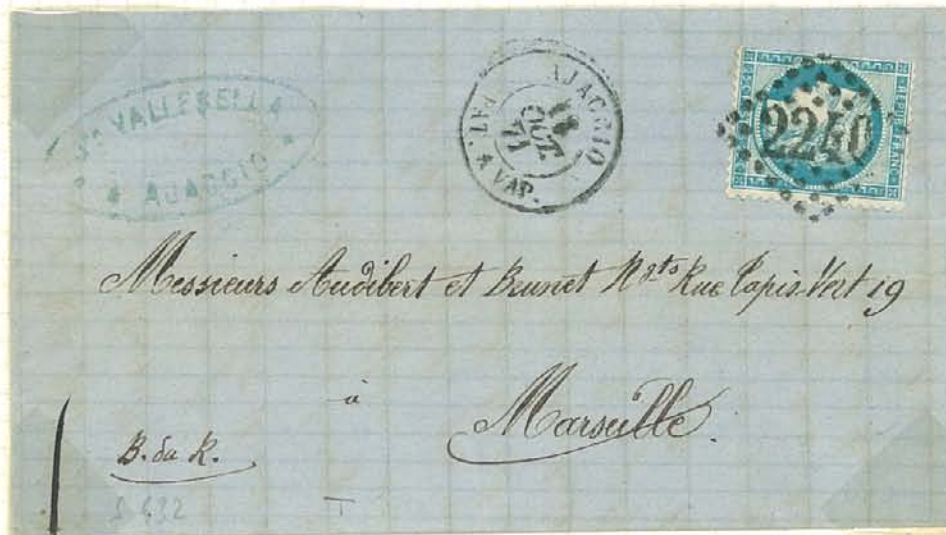 VALLEBELLA
A AJACCIO
AJACCIO
OCT
PAQ. A VAP.
REPUB. FRANC.
2240
Messieurs Audibert et Brunet Nᵍᵗˢ Rue Tapis-Vert 19
à
Marseille.
B. du R.